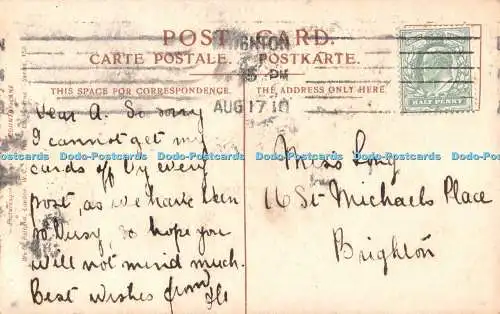 POST CARD.
CARTE POSTALE. POSTKARTE.
THIS SPACE FOR CORRESPONDENCE. THE ADDRESS ONLY HERE.
PM
AUG 17 10
HALF PENNY
Dear A. So sorry
I cannot get my
cards off by every
post, as we have been
so busy, so hope you
will not mind much.
Best wishes from
Miss Long
16 St Michaels Place
Brighton
Dodo-Postcards Dodo-Postcards Dodo-Postcards Dodo-Postcards Dodo-Postcards